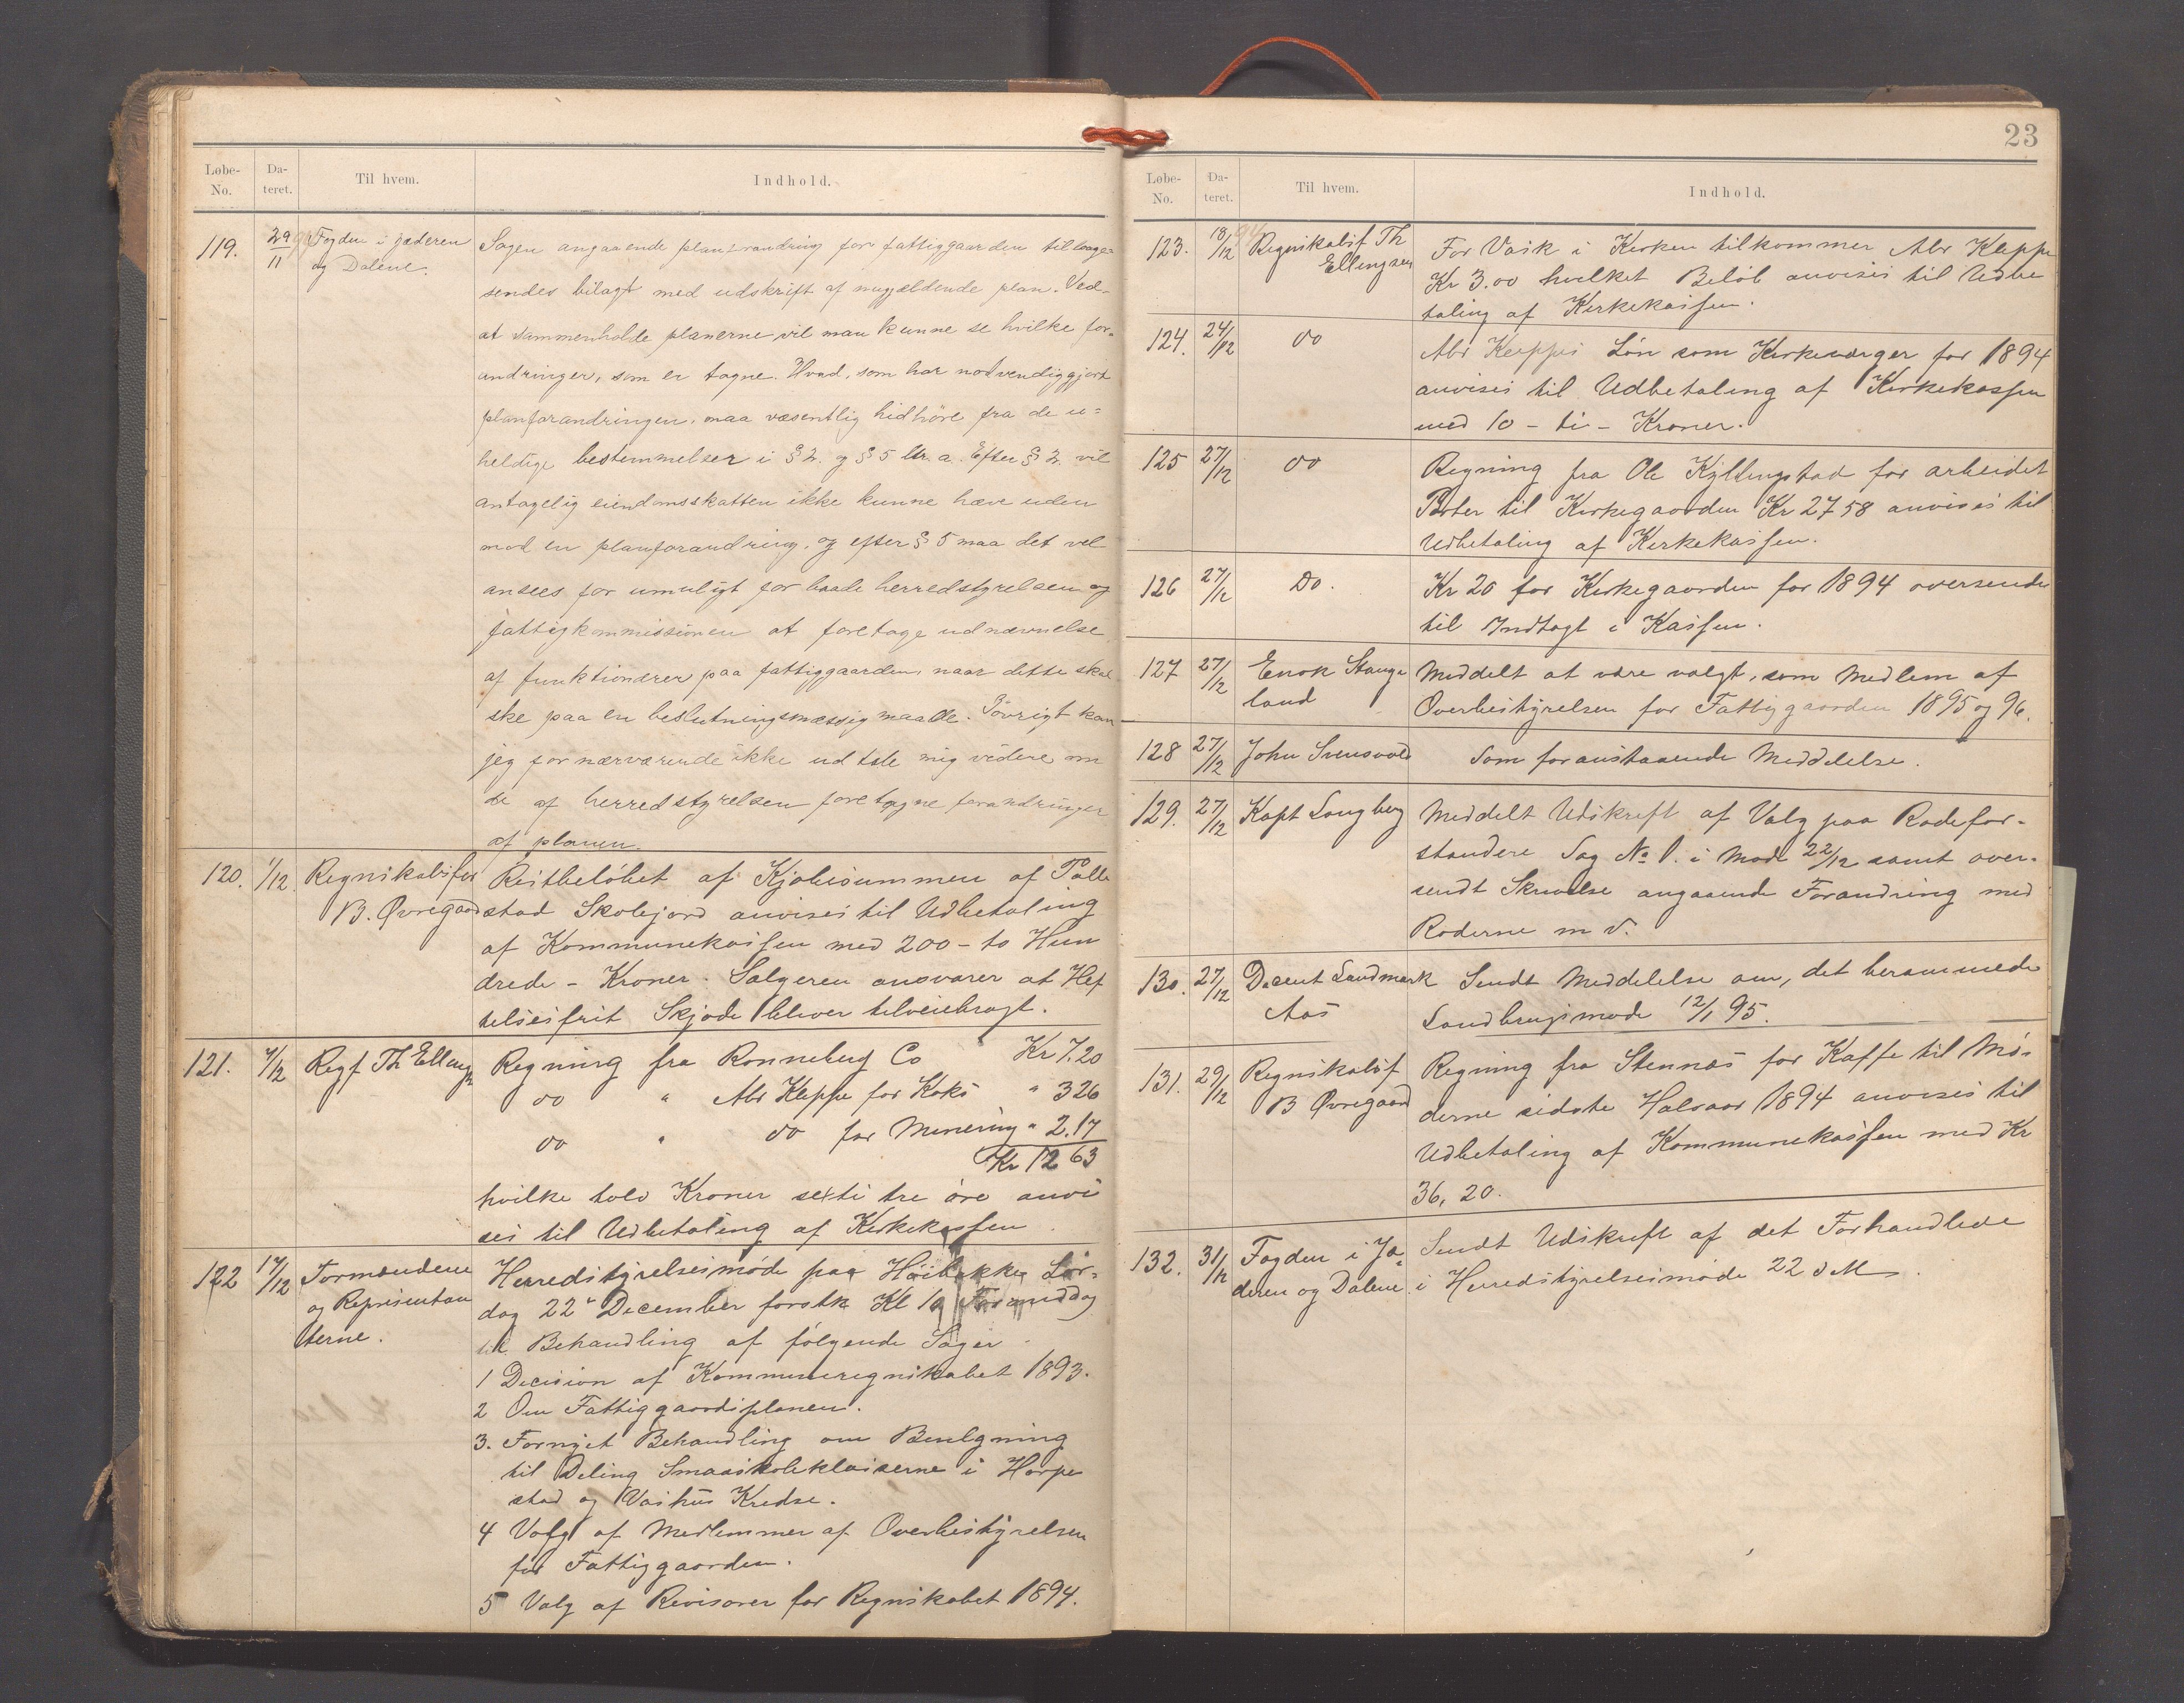 Løbe-No. Da-teret. Til hvem. Indhold.
119. 29/11 94 Fogden i Jæderen og Dalene.
Sagen angaaende planforandring for fattiggaarden tilbage-
sendes bilagt med udskrift af nugjældende plan. Ved-
at sammenholde planerne vil man kunne se hvilke for-
andringer, som er tagne. Hvad, som har nødvendiggjort
planforandringen, maa væsentlig hidhöre fra de u=
heldige bestemmelser i § 2. og § 5 ltr. a. Efter § 2. vil
antagelig eiendomsskatten ikke kunne hæve uden
med en planforandring, og efter § 5 maa det vel
ansees for umuligt for baade herredstyrelsen og
fattigkommissionen at foretage udnævnelse
af funktionærer paa fattiggaarden, naar dette skal
ske paa en beslutningsmæssig maade. Iövrigt kan
jeg for nærværende ikke udtale mig videre om
de af herredstyrelsen foretagne forandringer
af planen.
120. 1/12. Regnskabsfør B. Øvregaard
Restbelöbet af Kjøbesummen af Palle
stad Skolejord anvises til Udbetaling
af Kommunekassen med 200 - to Hun
drede - Kroner. Sælgeren ansvarer at Hef
telsesfrit Skjøde bliver tilveiebragt.
121. 4/12 Regf. Th Ellingsen
Regning fra Ronneberg Co Kr 7.20
do " Abr Kleppe for Koks " 3 26
do " do for Minering " 2.17
Kr 12 63
hvilke tolv Kroner sexti tre öre anvi
ses til Udbetaling af Kirkekassen.
122 17/12 Formændene og Representan terne.
Herredstyrelsesmöde paa Höibakke Lör-
dag 22de December førstk Kl 10 Formiddag
til Behandling af følgende Sager
1 Decision af Kommuneregnskabet 1893.
2 Om Fattiggaardsplanen.
3. Fornyet Behandling om Beslutning
til Deling Smaaskoleklasserne i Horpe
stad og Vashus Kredse.
4 Valg af Medlemmer af Overbestyrelsen
for Fattiggaarden.
5 Valg af Revisorer for Regnskabet 1894.
23
Løbe-No. Da-teret. Til hvem. Indhold.
123. 18/12 94 Regnskabsf Th Ellingsen
For Vask i Kirken tilkommer Abr Kleppe
Kr 3.00 hvilket Belöb anvises til Udbe
taling af Kirkekassen.
124. 24/12 do
Abr Kleppes Lön som Kirkeværger for 1894
anvises til Udbetaling af Kirkekassen
med 10 - ti - Kroner.
125 27/12 do
Regning fra Ole Kyllingstad for arbeidet
Porter til Kirkegaarden Kr 27 58 anvises til
Udbetaling af Kirkekassen.
126 27/12 Do.
Kr 20 for Kirkegaarden for 1894 oversendes
til Indtagt i Kassen.
127 27/12 Enok Stange land
Meddelt at være valgt, som Medlem af
Overbestyrelsen for Fattiggaarden 1895 og 96.
128 27/12 John Svensvold
Som foranstaaende Meddelelse.
129. 27/12 Kapt Langberg
Meddelt Udskrift af Valg paa Rodefor-
standere Sag No 1. i Møde 22/12 samt over-
sendt Skrivelse angaaende Forandring med
Roderne m v.
130. 27/12 Docent Landmark Aas
Sendt Meddelelse om, det berammede
Landbrugsmøde 12/1 95.
131. 29/12 Regnskabsf B Øvregaard
Regning fra Stennæs for Kaffe til Mö-
derne sidste Halvaar 1894 anvises til
Udbetaling af Kommunekassen med Kr
36, 20.
132. 31/12 Fogden i Jæ deren og Dalene.
Sendt Udskrift af det Forhandlede
i Herredstyrelsesmøde 22 d M.